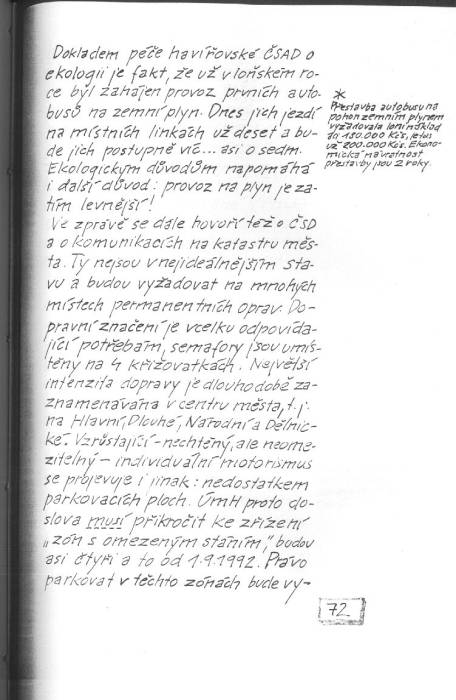 Dokladem péče havířovské ČSAD o
ekologii je fakt, že už v loňském ro-
ce byl zahájen provoz prvních auto-
busů na zemní plyn. Dnes jich jezdí
na místních linkách už deset a bu-
de jich postupně víc... asi o sedm.
Ekologickým důvodům napomáhá
i další důvod: provoz na plyn je za-
tím levnější!
Ve zprávě se dále hovoří též o ČSD
a o komunikacích na katastru měs-
ta. Ty nejsou v nejideálnějším sta-
vu a budou vyžadovat na mnohých
místech permanentních oprav. Do-
pravní značení je vcelku odpovída-
jící potřebám, semafory jsou umís-
těny na 4 křižovatkách. Největší
intenzita dopravy je dlouhodobě za-
znamenávána v centru města, t.j.
na Hlavní, Dlouhé, Národní a Dělnic-
ké. Vzrůstající – nechtěný, ale neome-
zitelný – individuální motorismus
se projevuje i jinak: nedostatkem
parkovacích ploch. ÚMH proto do-
slova musí přikročit ke zřízení
„zón s omezeným stáním," budou
asi čtyři a to od 1.9.1992. Právo
parkovat v těchto zónách bude vy-
*
Přestavba autobusu na
pohon zemním plynem
vyžadovala loni náklad
do 150.000 Kčs, letos
už 200.000 Kčs. Ekono-
mická návratnost
přestavby jsou 2 roky.
72